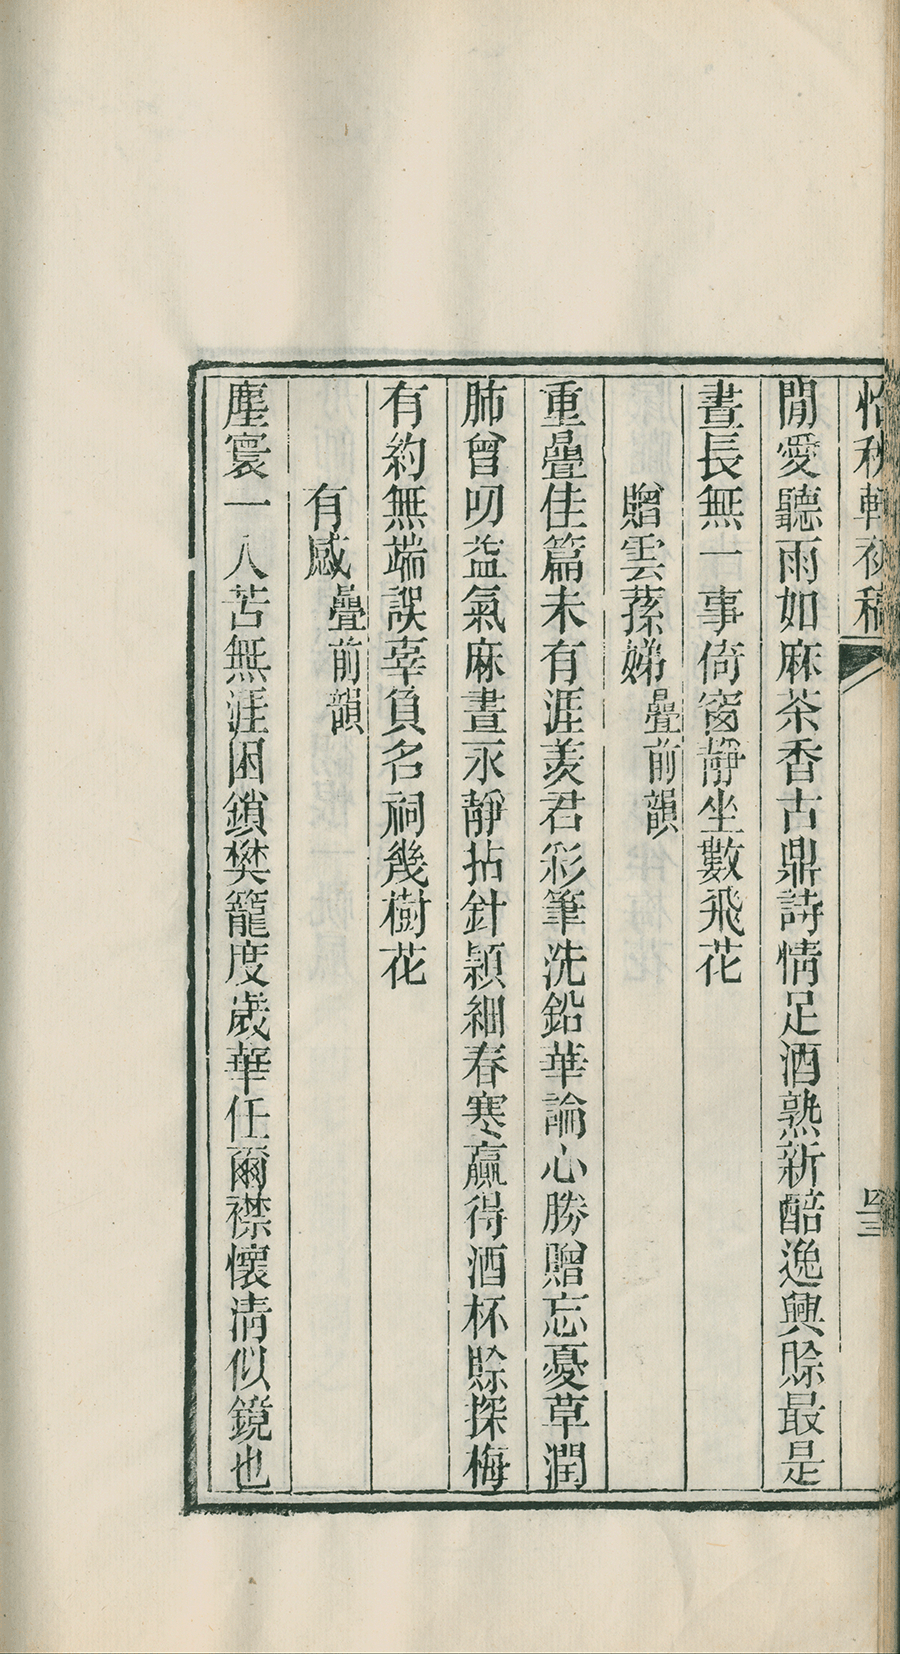 怡秋軒初稿
四三
閒愛聽雨如麻茶香古鼎詩情足酒熟新醅逸興賒最是
晝長無一事倚窗靜坐數飛花
贈雲蓀娣疊前韻
重疊佳篇未有涯羨君彩筆洗鉛華論心勝贈忘憂草潤
肺曾叨益氣麻晝永靜拈針穎細春寒贏得酒杯賒探梅
有約無端誤辜負名祠幾樹花
有感疊前韻
塵寰一人苦無涯困鎖樊籠度歲華任爾襟懷清似鏡也